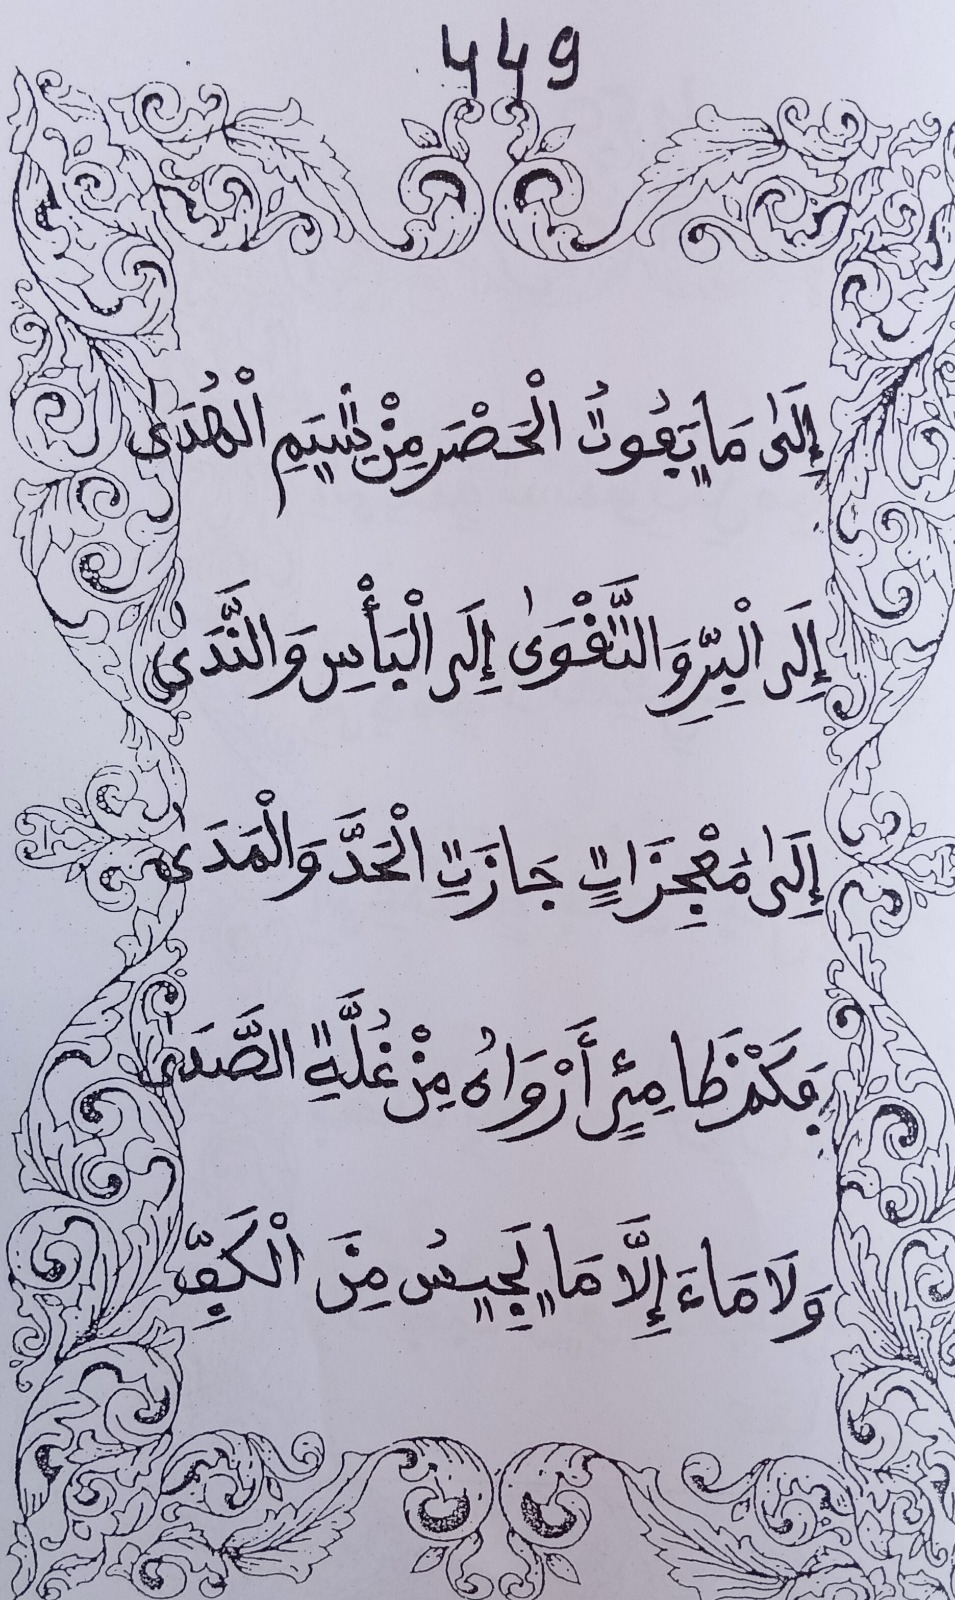 449
إِلَىٰ مَا يَفُوتُ الْحَصْرَ مِنْ شِيَمِ الْهُدَىٰ
إِلَى الْبِرِّ وَالتَّقْوَىٰ إِلَى الْبَأْسِ وَالنَّدَىٰ
إِلَىٰ مُعْجِزَاتٍ جَازَتِ الْحَدَّ وَالْمَدَىٰ
فَكَمْ ظَامِئٍ أَرْوَاهُ مِنْ غُلَّةِ الصَّدَىٰ
وَلَا مَاءَ إِلَّا مَا يَجِيشُ مِنَ الْكَفِّ